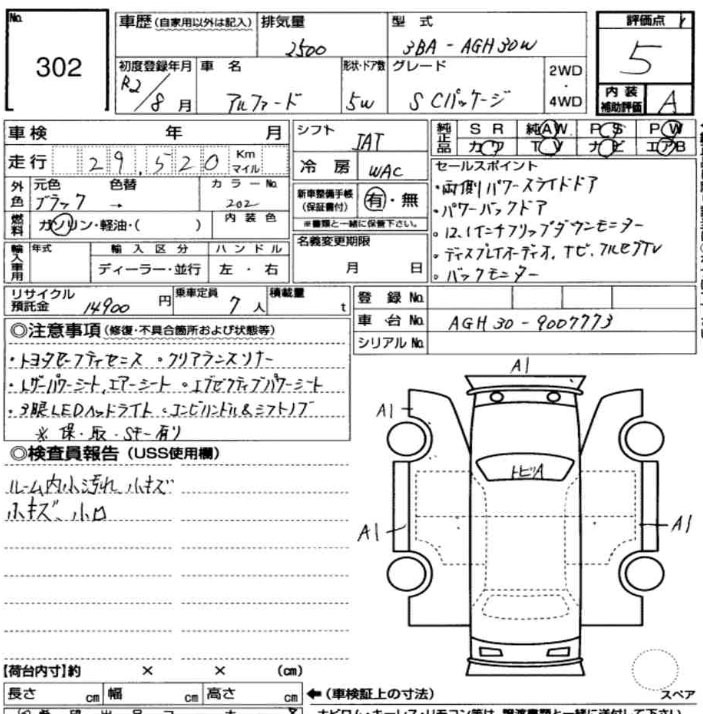 No. 302
車歴 (自家用以外は記入)
排気量 2500
型式 3BA-AGH30W
評価点 5
初度登録年月 R2/8月
車名 アルファード
形状・ドア数 5W
グレード SCパッケージ
2WD・4WD
内装補助評価 A
車検 年 月
走行 29,520 Km マイル
シフト IAT
冷房 WAC
純正品 SR 純AW PS PW
カワ TV ナビ エアB
外色 元色 色替 カラーNo.
ブラック → 202
燃料 ガソリン・軽油・( ) 内装色
新車整備手帳 (保証書付) 有・無
※書類と一緒に保管下さい。
名義変更期限
月 日
輸入車用 年式 輸入区分 ハンドル
ディーラー・並行 左・右
セールスポイント
・両側パワースライドドア
・パワーバックドア
・12.1インチフリップダウンモニター
・ディスプレイオーディオ, ナビ, フルセグTV
・バックモニター
リサイクル預託金 14900円
乗車定員 7人
積載量 t
登録No.
車台No. AGH30-9007773
シリアルNo.
◎注意事項 (修復・不具合箇所および状態等)
・トヨタセーフティセンス ・クリアランスソナー
・レザーパワーシート, エアーシート ・エグゼクティブパワーシート
・3眼LEDヘッドライト ・コンビハンドル&シフトノブ
※ 保・取・Sキー有り
◎検査員報告 (USS使用欄)
ルーム内小汚れ、小キズ
小キズ、小凹
A1
A1
トビA
A1
A1
【荷台内寸】約 × × (cm)
長さ cm 幅 cm 高さ cm
←(車検証上の寸法)
スペア